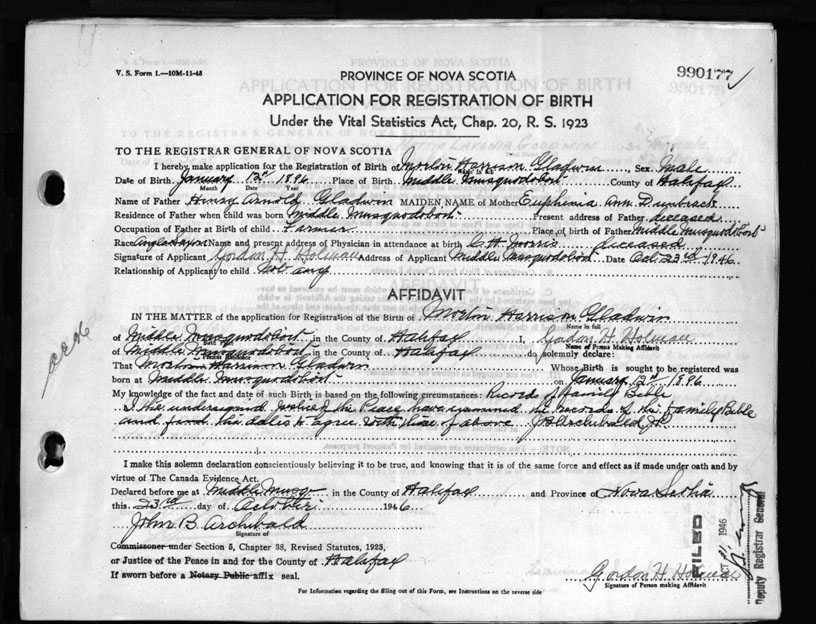 V. S. Form 1.—10M-11-45
990177
PROVINCE OF NOVA SCOTIA
APPLICATION FOR REGISTRATION OF BIRTH
Under the Vital Statistics Act, Chap. 20, R. S. 1923
TO THE REGISTRAR GENERAL OF NOVA SCOTIA
I hereby make application for the Registration of Birth of Morton Harrison Gladwin, Sex Male
Date of Birth January 12th 1896 Place of Birth Middle Musquodoboit County of Halifax
Month Date Year
Name of Father Henry Arnold Gladwin MAIDEN NAME of Mother Euphemia Ann Dunbrack
Residence of Father when child was born Middle Musquodoboit Present address of Father deceased
Occupation of Father at Birth of child Farmer Place of birth of Father Middle Musquodoboit
Race Anglo Saxon Name and present address of Physician in attendance at birth C. H. Morris deceased
Signature of Applicant Gordon H. Holman Address of Applicant Middle Musquodoboit Date Oct. 23rd 1946
Relationship of Applicant to child not any
AFFIDAVIT
IN THE MATTER of the application for Registration of the Birth of Morton Harrison Gladwin
Name in full
of Middle Musquodoboit in the County of Halifax I, Gordon H. Holman
Name of Person Making Affidavit
of Middle Musquodoboit in the County of Halifax do solemnly declare:
That Morton Harrison Gladwin Whose Birth is sought to be registered was
born at Middle Musquodoboit on January 12th 1896
My knowledge of the fact and date of such Birth is based on the following circumstances: Records of Family Bible
I the undersigned Justice of the Peace have examined the records of the Family Bible
and find the dates to agree with those of above J B Archibald J.P.
I make this solemn declaration conscientiously believing it to be true, and knowing that it is of the same force and effect as if made under oath and by
virtue of The Canada Evidence Act.
Declared before me at Middle Musq in the County of Halifax and Province of Nova Scotia
this 23rd day of October 1946
John B. Archibald
Signature of
Commissioner under Section 5, Chapter 38, Revised Statutes, 1923,
or Justice of the Peace in and for the County of Halifax
If sworn before a Notary Public affix seal.
Gordon H. Holman
Signature of Person making Affidavit
For Information regarding the filling out of this Form, see Instructions on the reverse side
FILED
OCT 1946
Deputy Registrar General